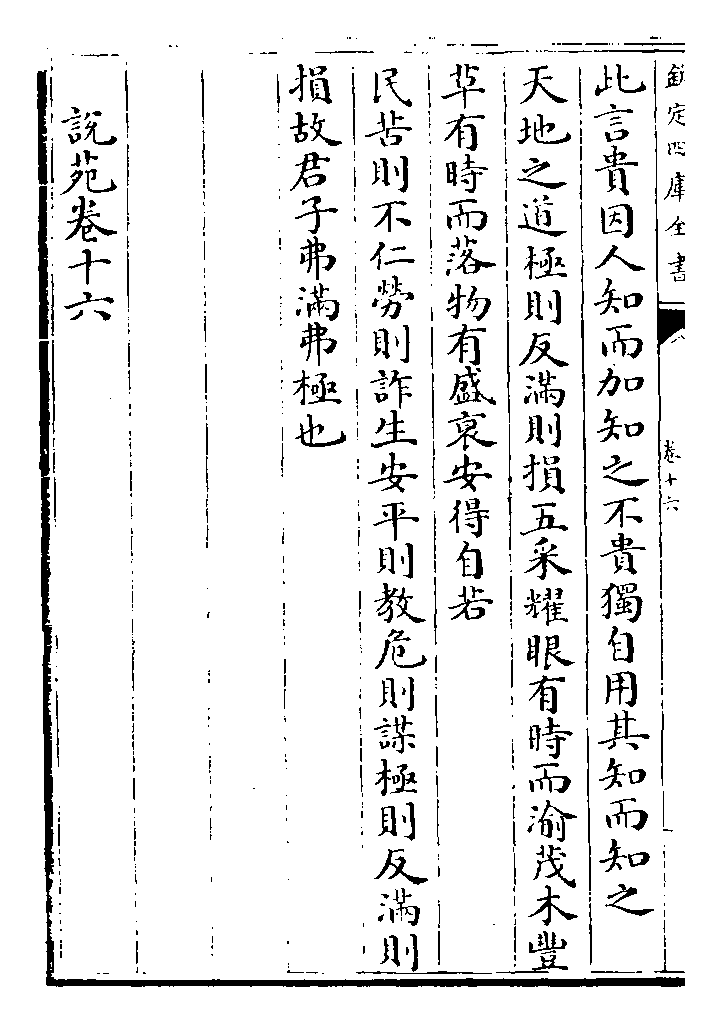 欽定四庫全書
卷十六
此言貴因人知而加知之不貴獨自用其知而知之
天地之道極則反滿則損五采耀眼有時而渝茂木豐
草有時而落物有盛衰安得自若
民苦則不仁勞則詐生安平則教危則謀極則反滿則
損故君子弗滿弗極也
說苑卷十六